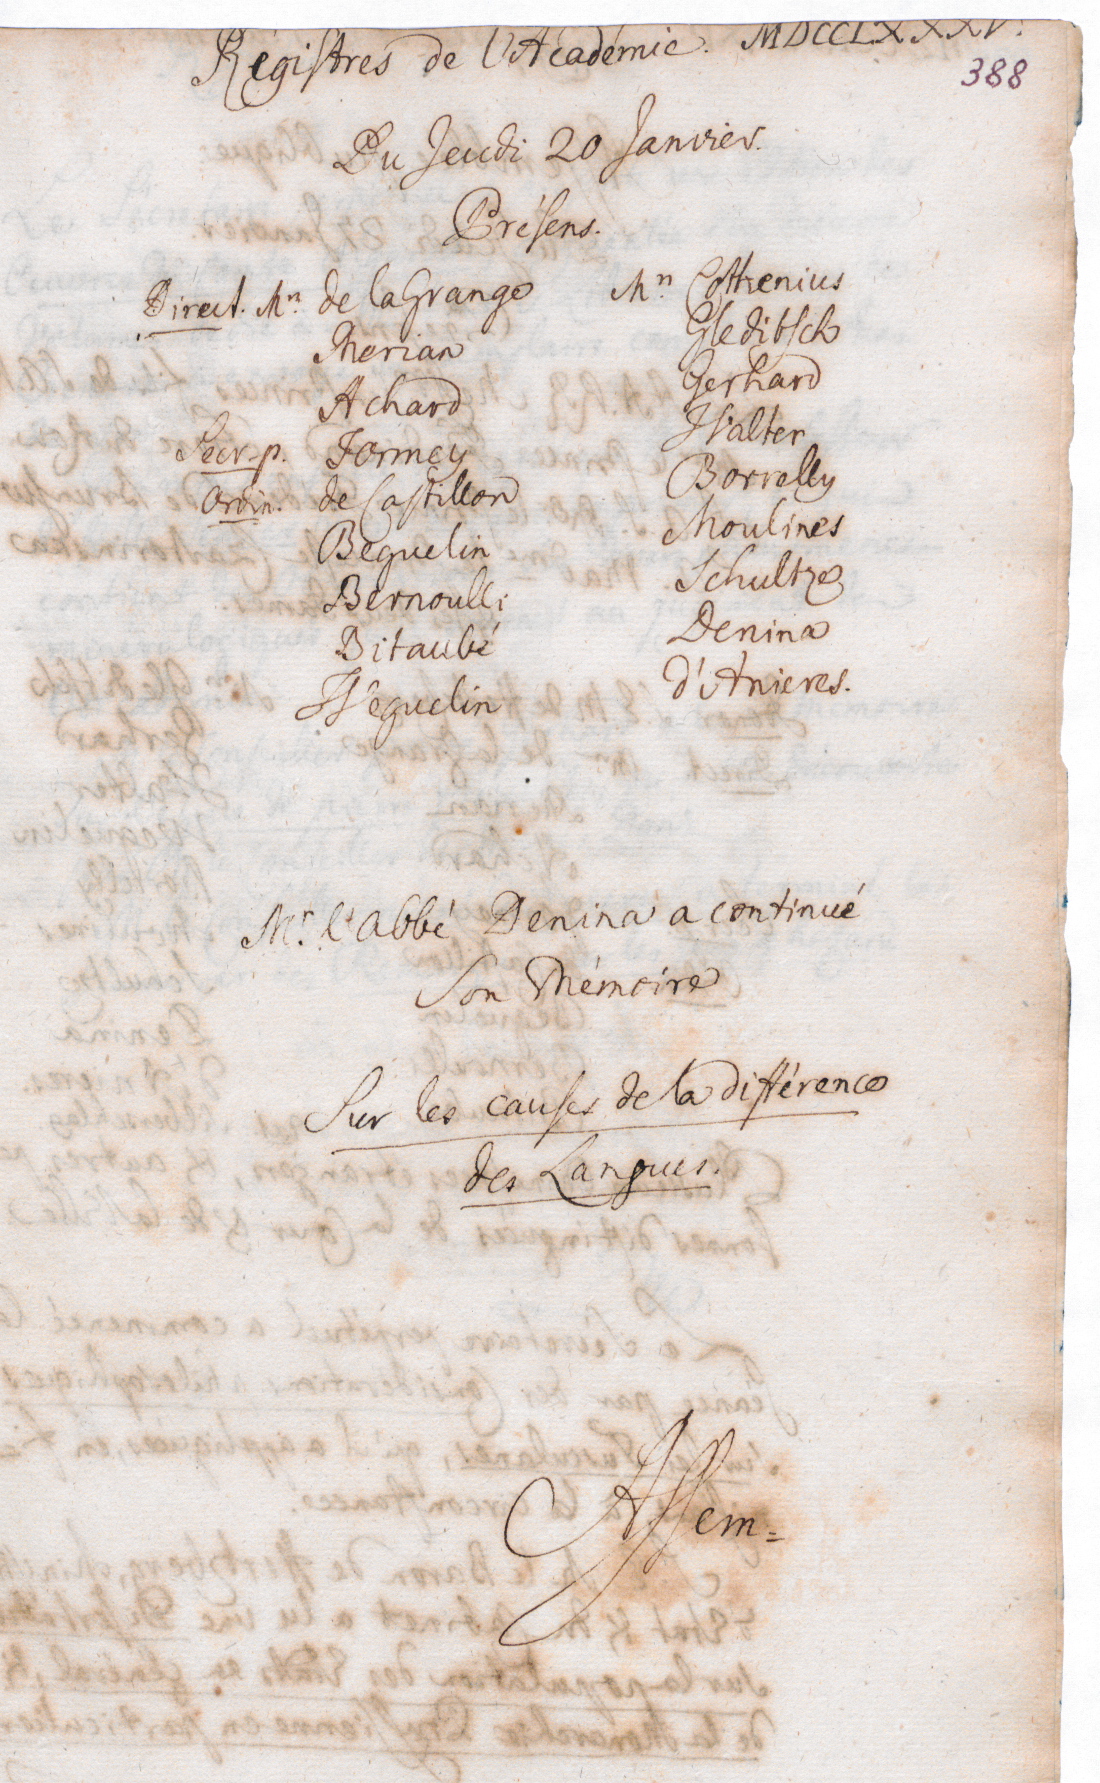 Régistres de l'Académie. MDCCLXXXV.
388
Du Jeudi 20 Janvier.
Présens.
Direct. Mrs. de la Grange
Merian
Achard
Secr. p. Formey
Ordin. de Castillon
Beguelin
Bernoulli
Bitaubé
Weguelin
Mrs Cothenius
Gleditsch
Gerhard
Walter
Borrelly
Moulines
Schultze
Denina
d'Anieres.
Mr. l'Abbé Denina a continué
Son Mémoire
Sur les causes de la différence
des Langues.
Assem=